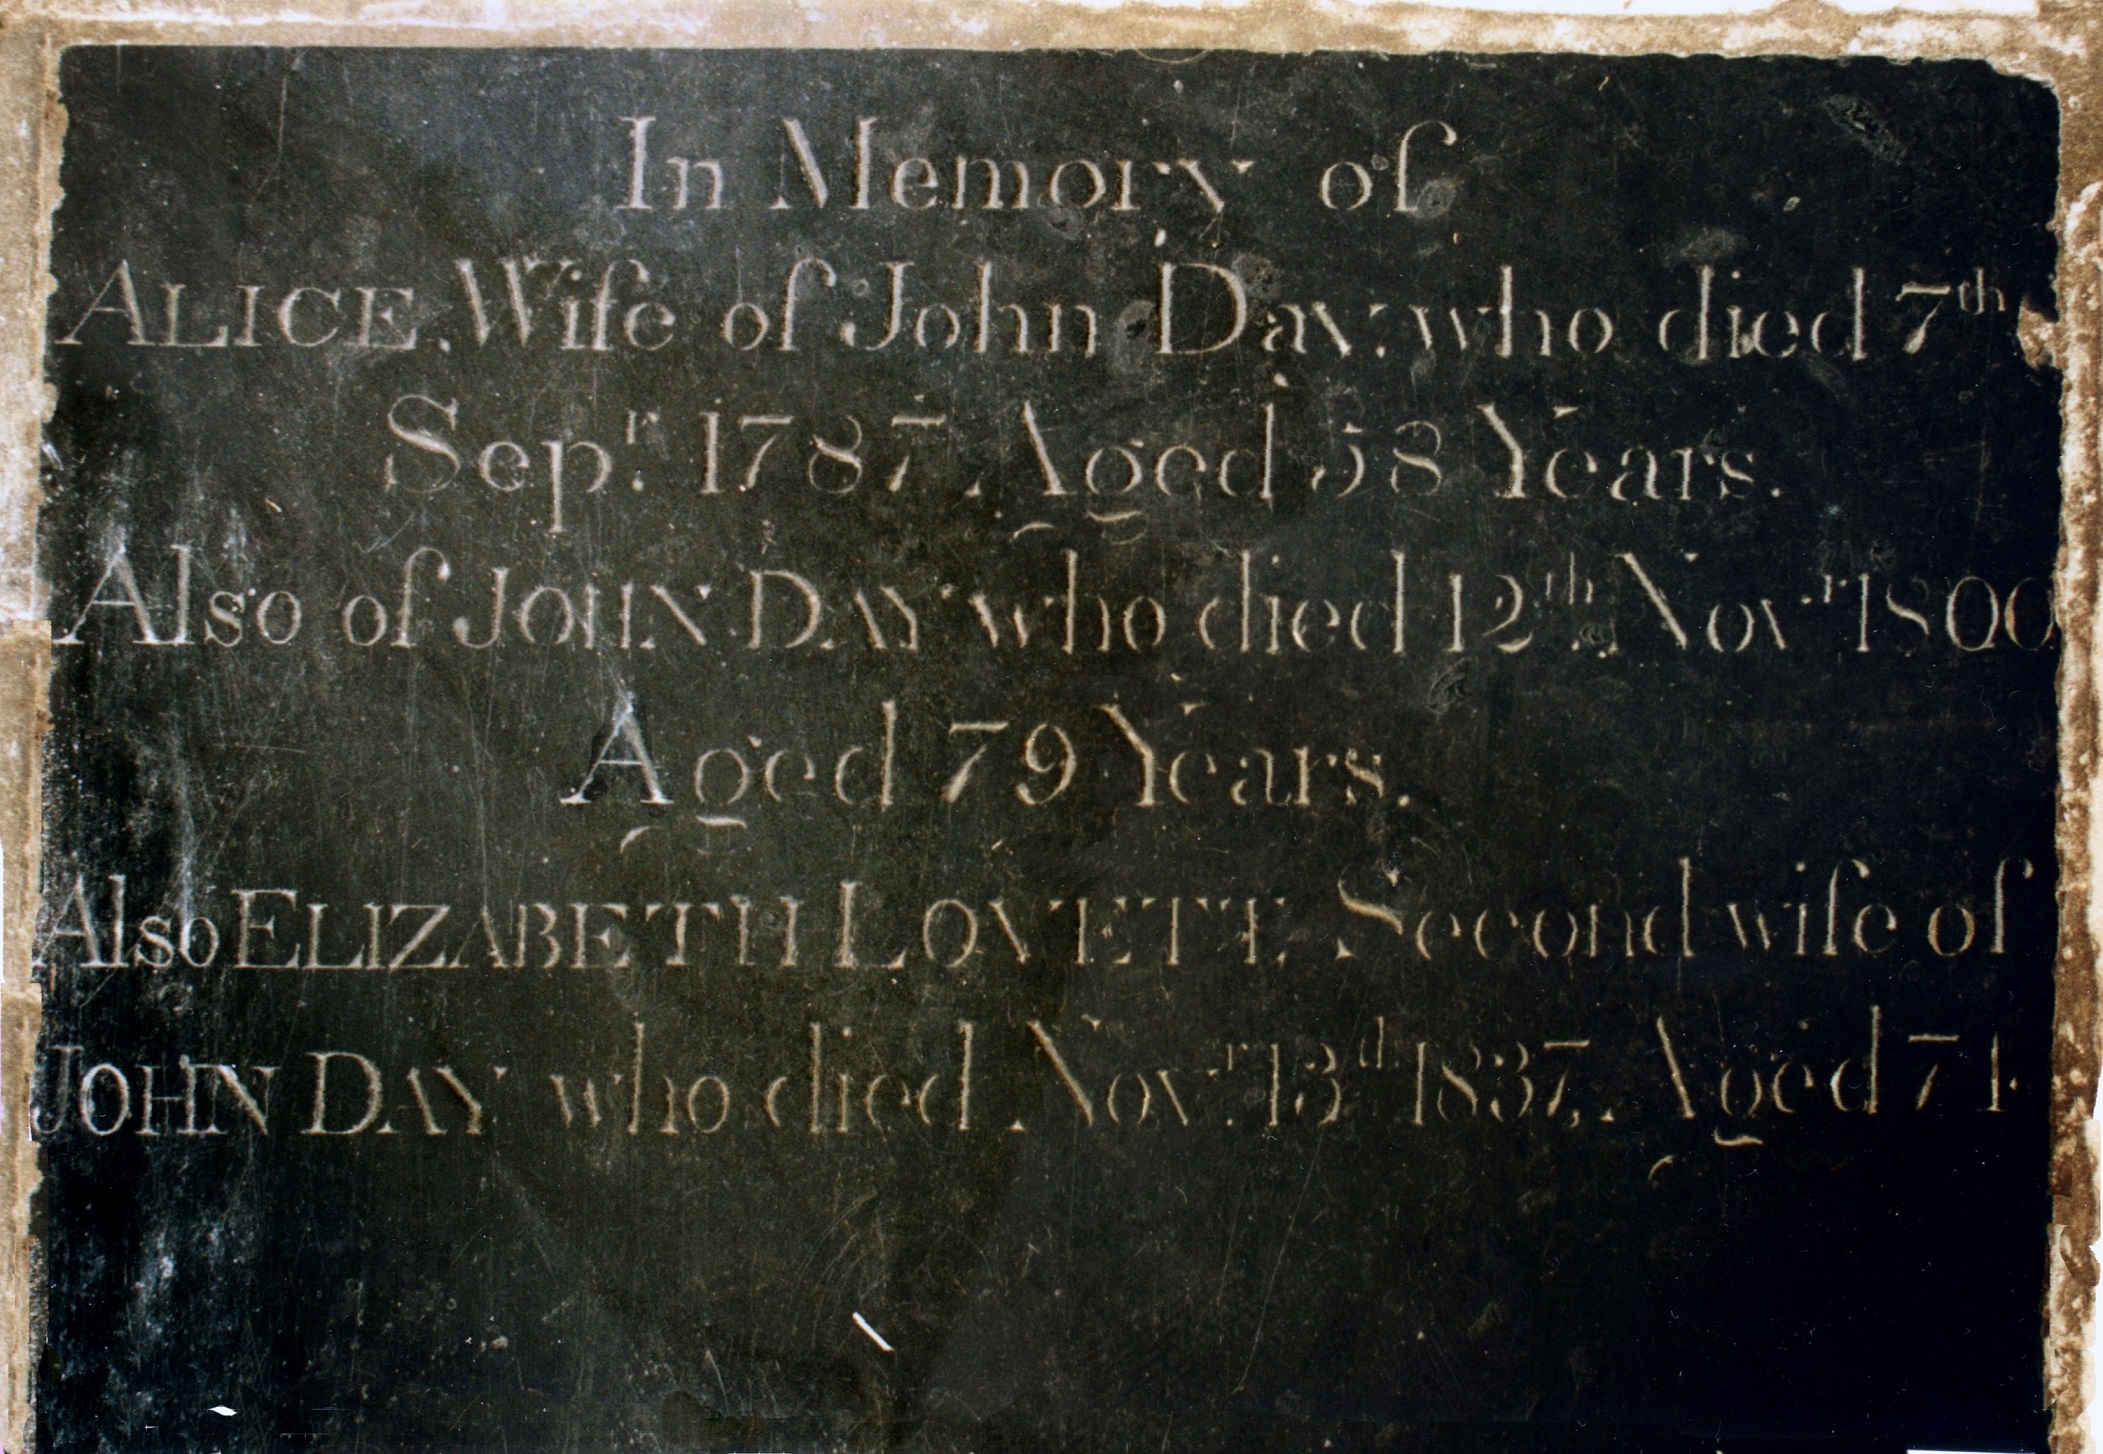 In Memory of
ALICE, Wife of John Day: who died 7th
Sepr. 1787, Aged 58 Years.
Also of JOHN DAY who died 12th Novr 1800
Aged 79 Years.
Also ELIZABETH LOVETT, Second wife of
JOHN DAY who died Novr. 13th 1837, Aged 74.